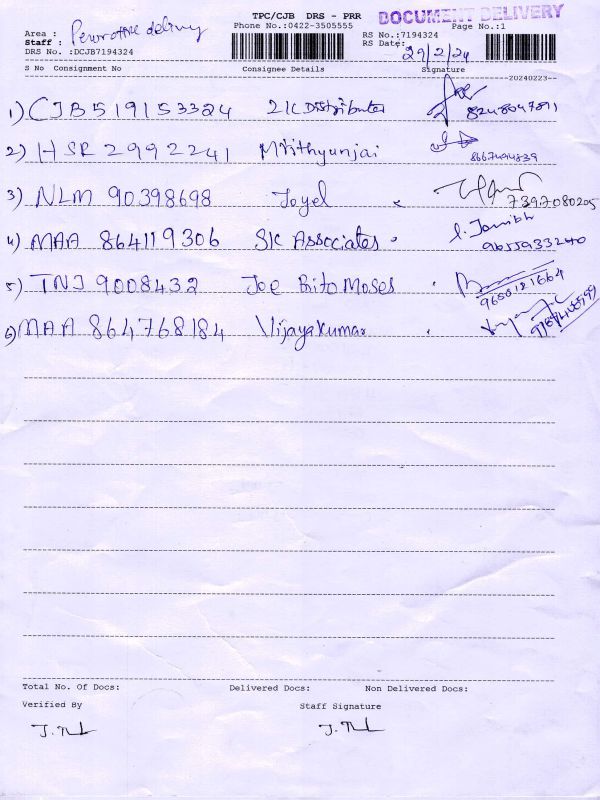 TPC/CJB DRS - PRR
DOCUMENT DELIVERY
Area :
Phone No.:0422-3505555
Page No.:1
Staff :
RS No.:7194324
DRS No. :DCJB7194324
RS Date: 29/2/24
S No Consignment No Consignee Details Signature
20240223
1) CJB519153324 21C Distributer 8248047891
2) HSR 2992241 Mrithyunjai 8667494839
3) NLM 90398698 Joyel 7397080205
4) MAA 864119306 SK Associates 9655933240
5) TNJ 9008432 Joe Brito Moses 9650121664
6) MAA 864768184 Vijayakumar
Total No. Of Docs: Delivered Docs: Non Delivered Docs:
Verified By Staff Signature